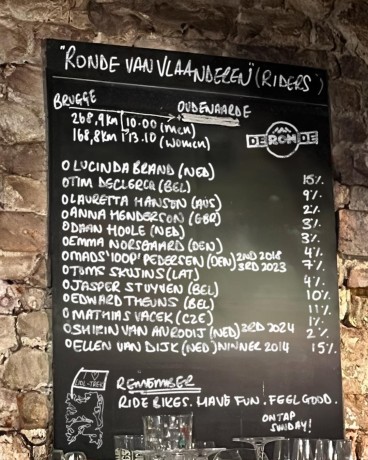 "RONDE VAN VLAANDEREN" (RIDERS)
BRUGGE OUDENAARDE
268,9km 10.00 (MEN)
168,8km 13.10 (WOMEN)
DE RONDE
O LUCINDA BRAND (NED) 15%
O TIM DECLERCQ (BEL) 9%
O LAURETTA HANSON (AUS) 2%
O ANNA HENDERSON (GBR) 3%
O DAAN HOOLE (NED) 3%
O EMMA NORSGAARD (DEN) 4%
O MADS '100P' PEDERSEN (DEN) 2ND 2018 3RD 2023 7%
O TOMS SKUJINS (LAT) 4%
O JASPER STUYVEN (BEL) 10%
O EDWARD THEUNS (BEL) 11%
O MATHIAS VACEK (CZE) 1%
O SHIRIN VAN ANROOIJ (NED) 3RD 2024 2%
O ELLEN VAN DIJK (NED) WINNER 2014 15%
LIDL-TREK
REMEMBER
RIDE BIKES. HAVE FUN. FEEL GOOD.
ON TAP
SUNDAY!